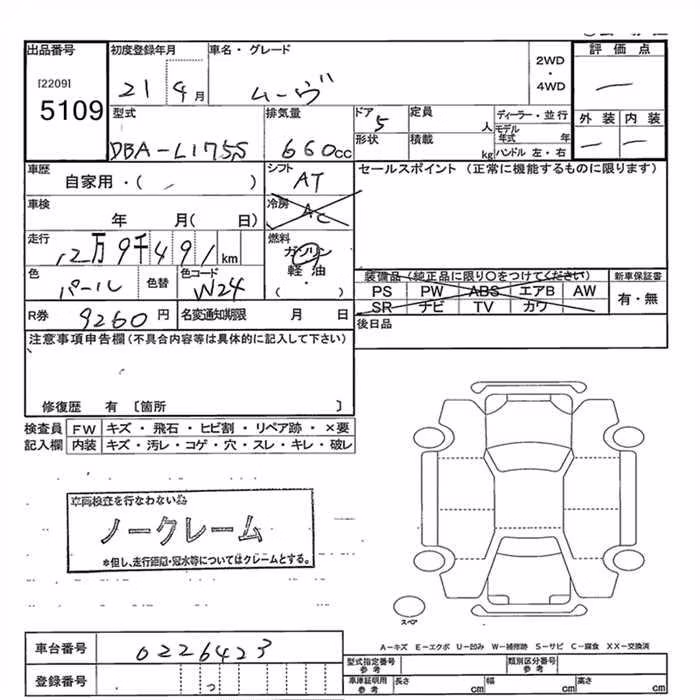 出品番号 初度登録年月 車名・グレード 2WD・4WD 評価点
[2209] 5109 21 4月 ムーヴ —
型式 排気量 ドア 5 定員 人 ディーラー・並行 外装 内装
DBA-L175S 660cc 形状 積載 kg モデル年式 年 ハンドル 左・右 — —
車歴 シフト セールスポイント (正常に機能するものに限ります)
自家用・( ) AT
車検 冷房
年 月( 日) AC
走行 燃料
12万9千491km ガソリン
色 色替 色コード 軽油 装備品(純正品に限り○をつけてください) 新車保証書
パール W24 ( ・ ) PS PW ABS エアB AW 有・無
SR ナビ TV カワ
R券 9260円 名変通知期限 月 日 後日品
注意事項申告欄(不具合内容等は具体的に記入して下さい)
修復歴 有 〔箇所 〕
検査員 FW キズ・飛石・ヒビ割・リペア跡・×要
記入欄 内装 キズ・汚レ・コゲ・穴・スレ・キレ・破レ
車両検査を行なわない為
ノークレーム
*但し、走行距離・冠水等についてはクレームとする。
スペア
A-キズ E-エクボ U-凹み W-補修跡 S-サビ C-腐食 XX-交換済
車台番号 0226423 型式指定番号 参考 類別区分番号 参考
登録番号 車検証明用 参考 長さ cm 幅 cm 高さ cm